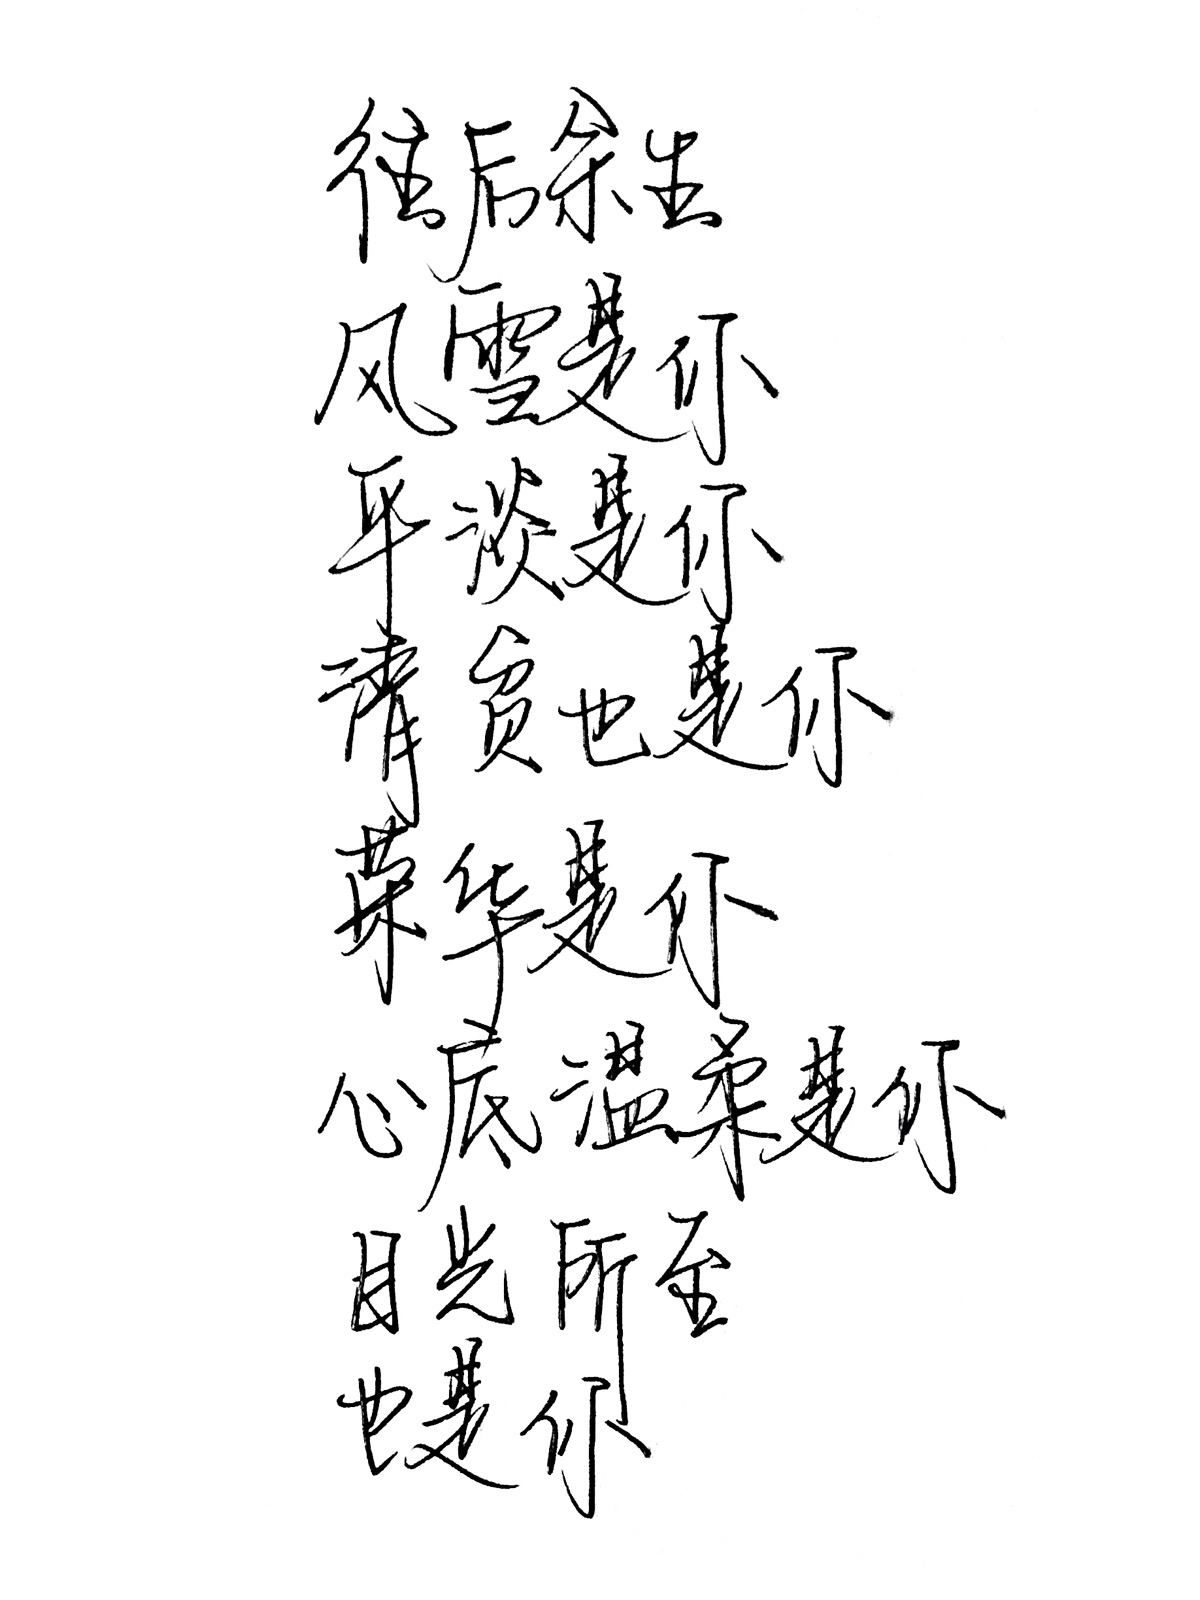 往后余生
风雪是你
平淡是你
清贫也是你
荣华是你
心底温柔是你
目光所至
也是你